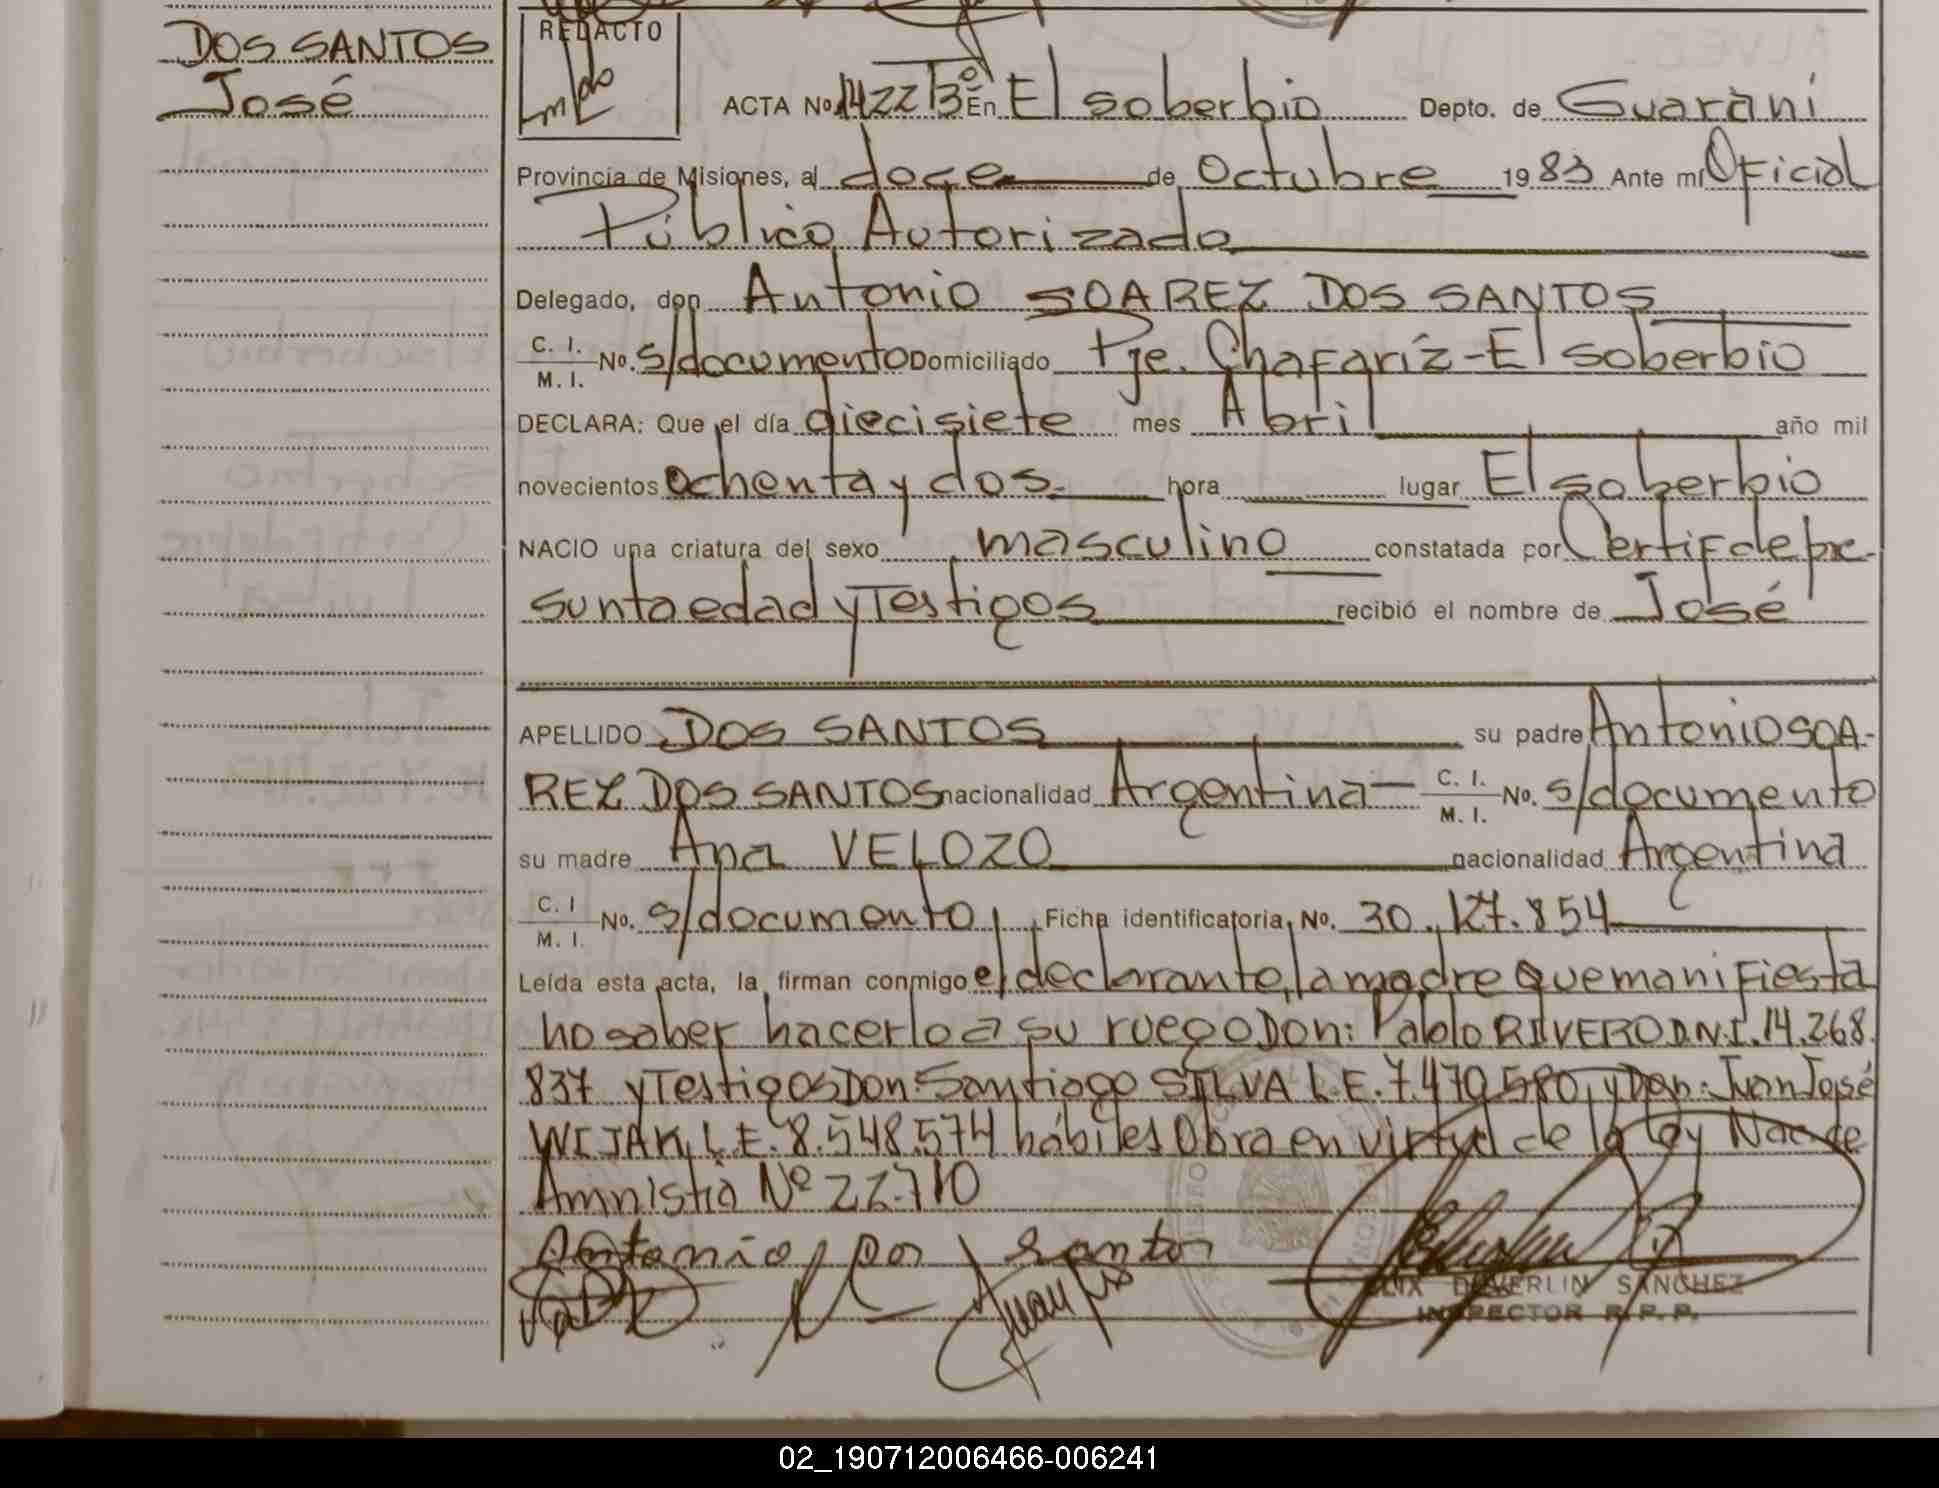 DOS SANTOS
José
REDACTO
ACTA No 1422 T3º En El soberbio Depto. de Guaraní
Provincia de Misiones, al doce de Octubre 1983 Ante mí Oficial
Público Autorizado
Delegado, don Antonio SOAREZ DOS SANTOS
C. I.
M. I. No. s/documento Domiciliado Pje. Chafaríz-El soberbio
DECLARA: Que el día diecisiete mes Abril año mil
novecientos ochenta y dos hora lugar El soberbio
NACIO una criatura del sexo masculino constatada por Certif de pre-
sunta edad y Testigos recibió el nombre de José
APELLIDO DOS SANTOS su padre Antonio SOA-
REZ DOS SANTOS nacionalidad Argentina C. I. M. I. No. s/documento
su madre Ana VELOZO nacionalidad Argentina
C. I M. I. No. s/documento Ficha identificatoria, No. 30.127.854
Leída esta acta, la firman conmigo el declarante, la madre que manifiesta
no saber hacerlo a su ruego Don: Pablo RIVERO D.N.I. 14.268.
837 y Testigos Don Santiago SILVA L.E. 7.470.580, y Don: Juan José
WIJAK, L.E. 8.548.574 hábiles Obra en virtud de la Ley Nac de
Amnistía Nº 22.710
Antonio Dos Santos
FELIX DEVERLIN SANCHEZ
INSPECTOR R. P. P.
02_190712006466-006241